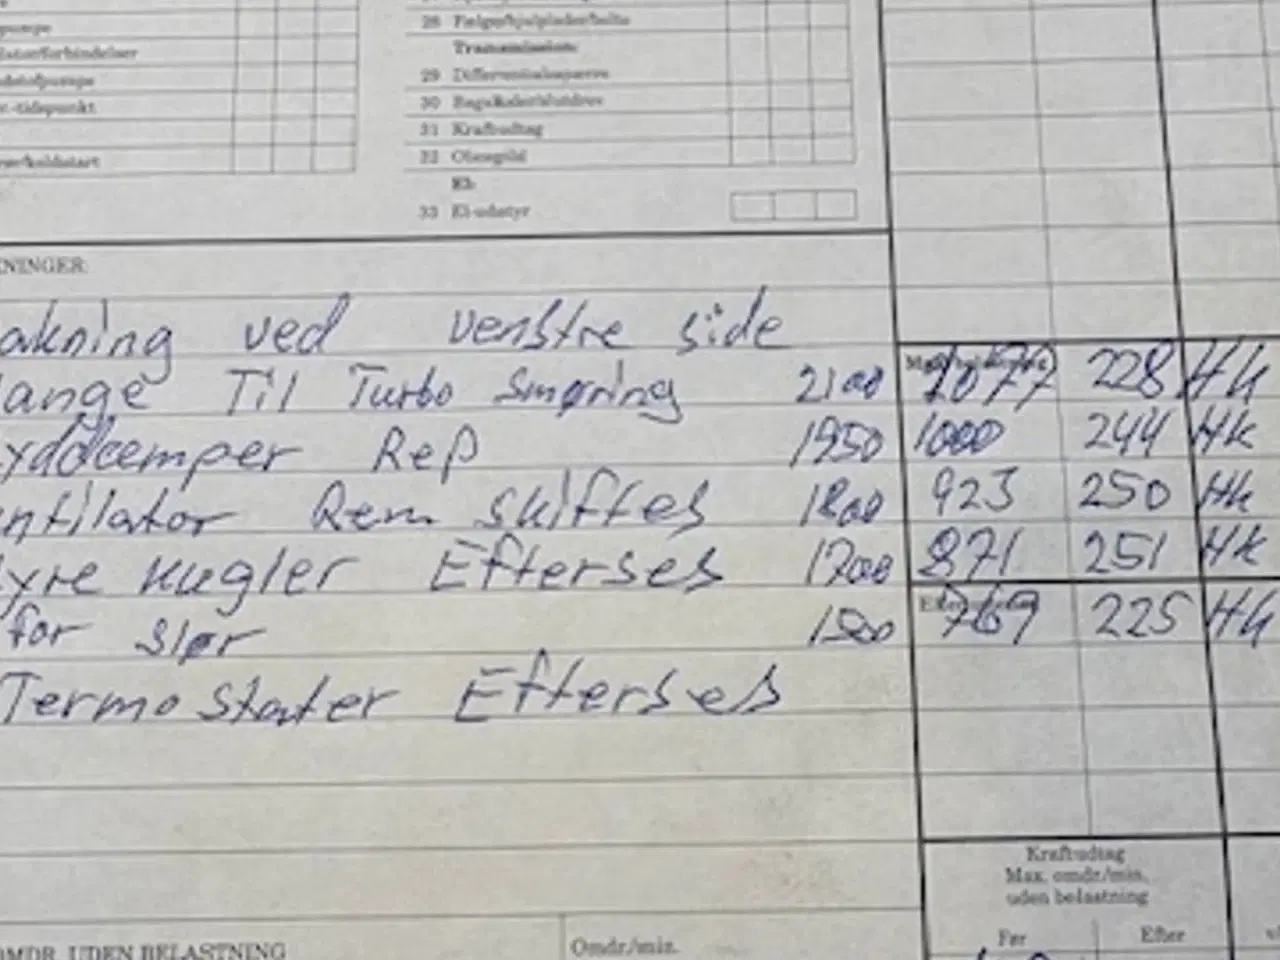 pumpe
28 Fælge/hjulplader/bolte
Transmission:
29 Differentialespærre
30 Bagaksler/slutdrev
31 Kraftudtag
32 Oliespild
El:
33 El-udstyr
-tidspunkt
koldstart
NINGER:
akning ved venstre side
lange Til Turbo Smøring 2100 1077 228 Hk
yddæmper Rep 1950 1000 244 Hk
ntilator Rem skiftes 1800 923 250 Hk
yre kugler Efterses 1700 871 251 Hk
for slør 1500 769 225 Hk
Termostater Efterses
Kraftudtag
Max. omdr./min.
uden belastning
Før Efter
OMDR. UDEN BELASTNING Omdr./min.